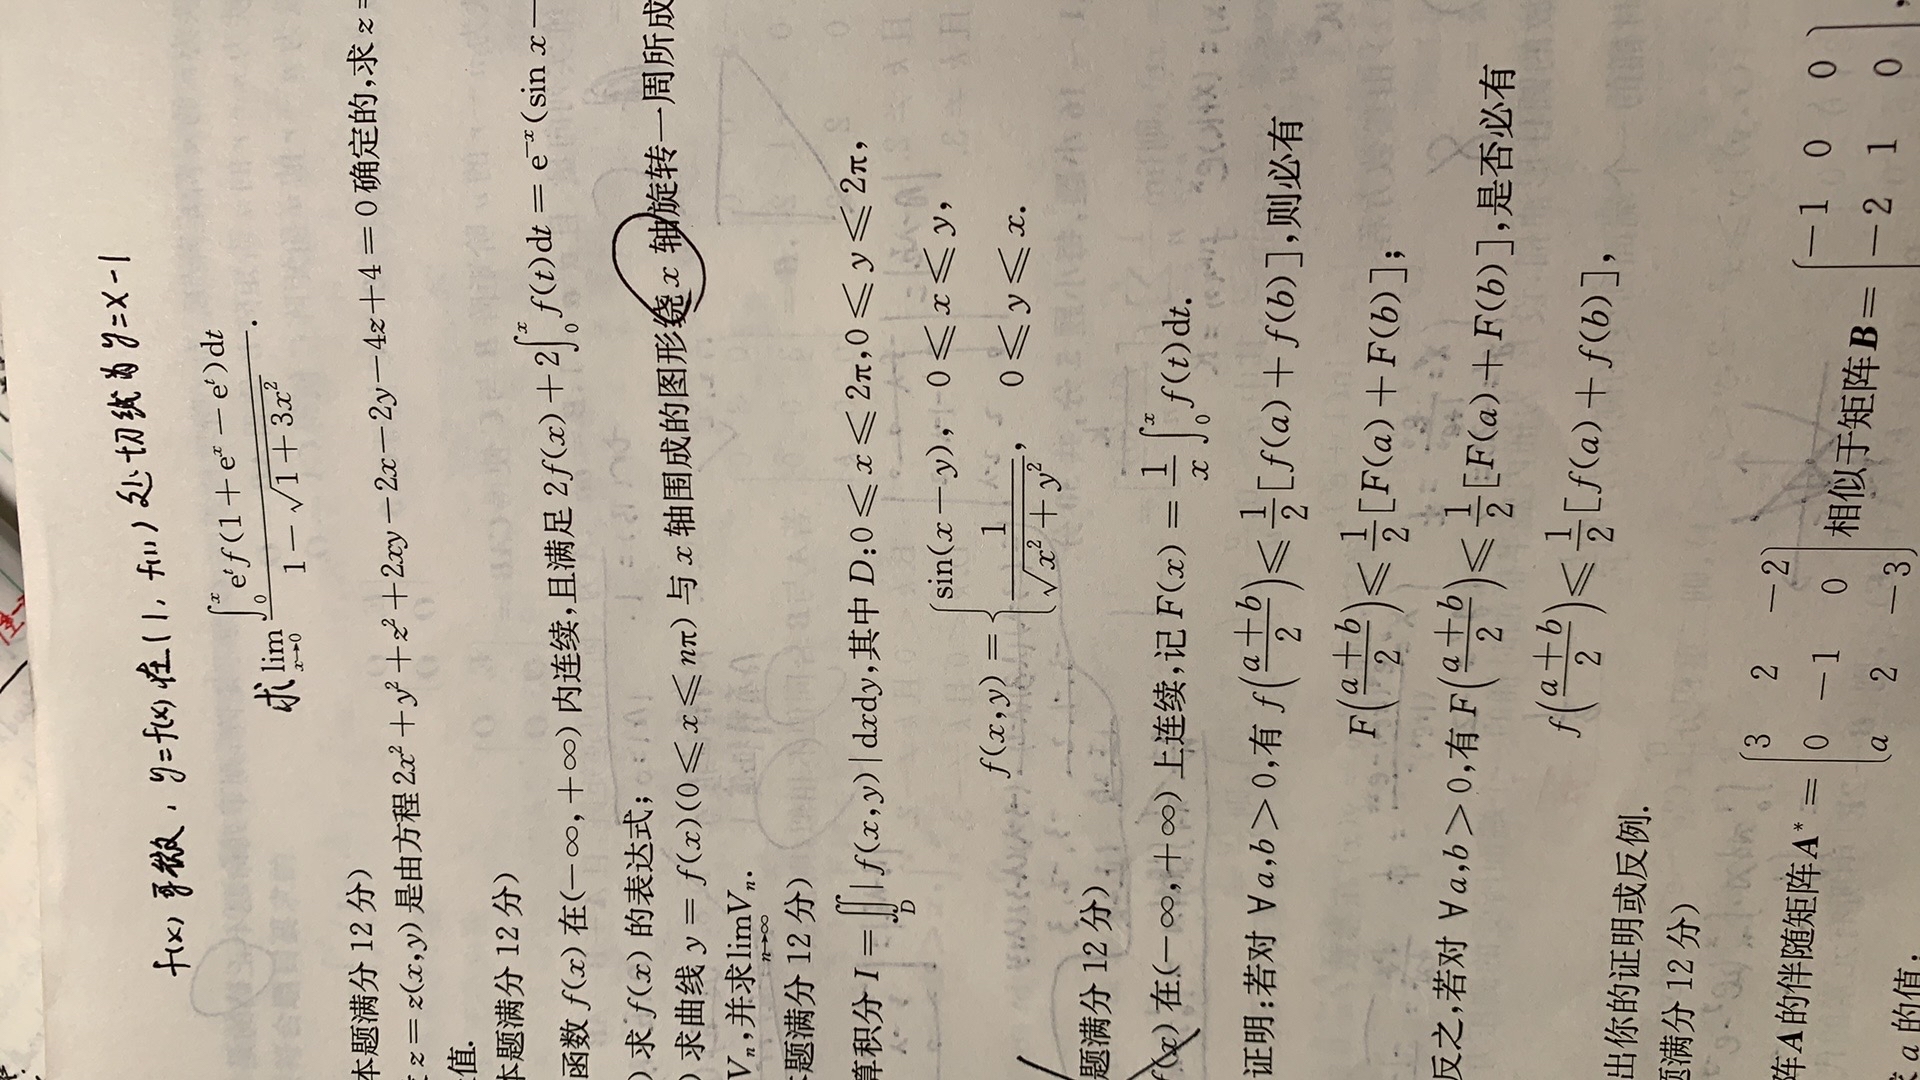 f(x)可微，y=f(x)在(1, f(1))处切线为y=x-1
求 lim_{x→0} \frac{∫_0^x e^t f(1+e^x-e^t)dt}{1-\sqrt{1+3x^2}}.
本题满分12分)
z=z(x,y)是由方程2x²+y²+z²+2xy-2x-2y-4z+4=0确定的,求z=
值.
本题满分12分)
函数f(x)在(-∞,+∞)内连续,且满足2f(x)+2∫_0^x f(t)dt=e^{-x}(sin x-
)求f(x)的表达式;
)求曲线y=f(x)(0≤x≤nπ)与x轴围成的图形绕x轴旋转一周所成
V_n,并求 lim_{n→∞} V_n.
题满分12分)
算积分I=∬_D|f(x,y)|dxdy,其中D:0≤x≤2π,0≤y≤2π,
f(x,y)={ sin(x-y), 0≤x≤y,
\frac{1}{\sqrt{x²+y²}}, 0≤y≤x.
题满分12分)
f(x)在(-∞,+∞)上连续,记F(x)=\frac{1}{x}∫_0^x f(t)dt.
证明:若对∀a,b>0,有f(\frac{a+b}{2})≤\frac{1}{2}[f(a)+f(b)],则必有
F(\frac{a+b}{2})≤\frac{1}{2}[F(a)+F(b)];
反之,若对∀a,b>0,有F(\frac{a+b}{2})≤\frac{1}{2}[F(a)+F(b)],是否必有
f(\frac{a+b}{2})≤\frac{1}{2}[f(a)+f(b)],
出你的证明或反例.
题满分12分)
阵A的伴随矩阵A*=(3 2 -2; 0 -1 0; a 2 -3)相似于矩阵B=(-1 0 0; -2 1 0
a的值;